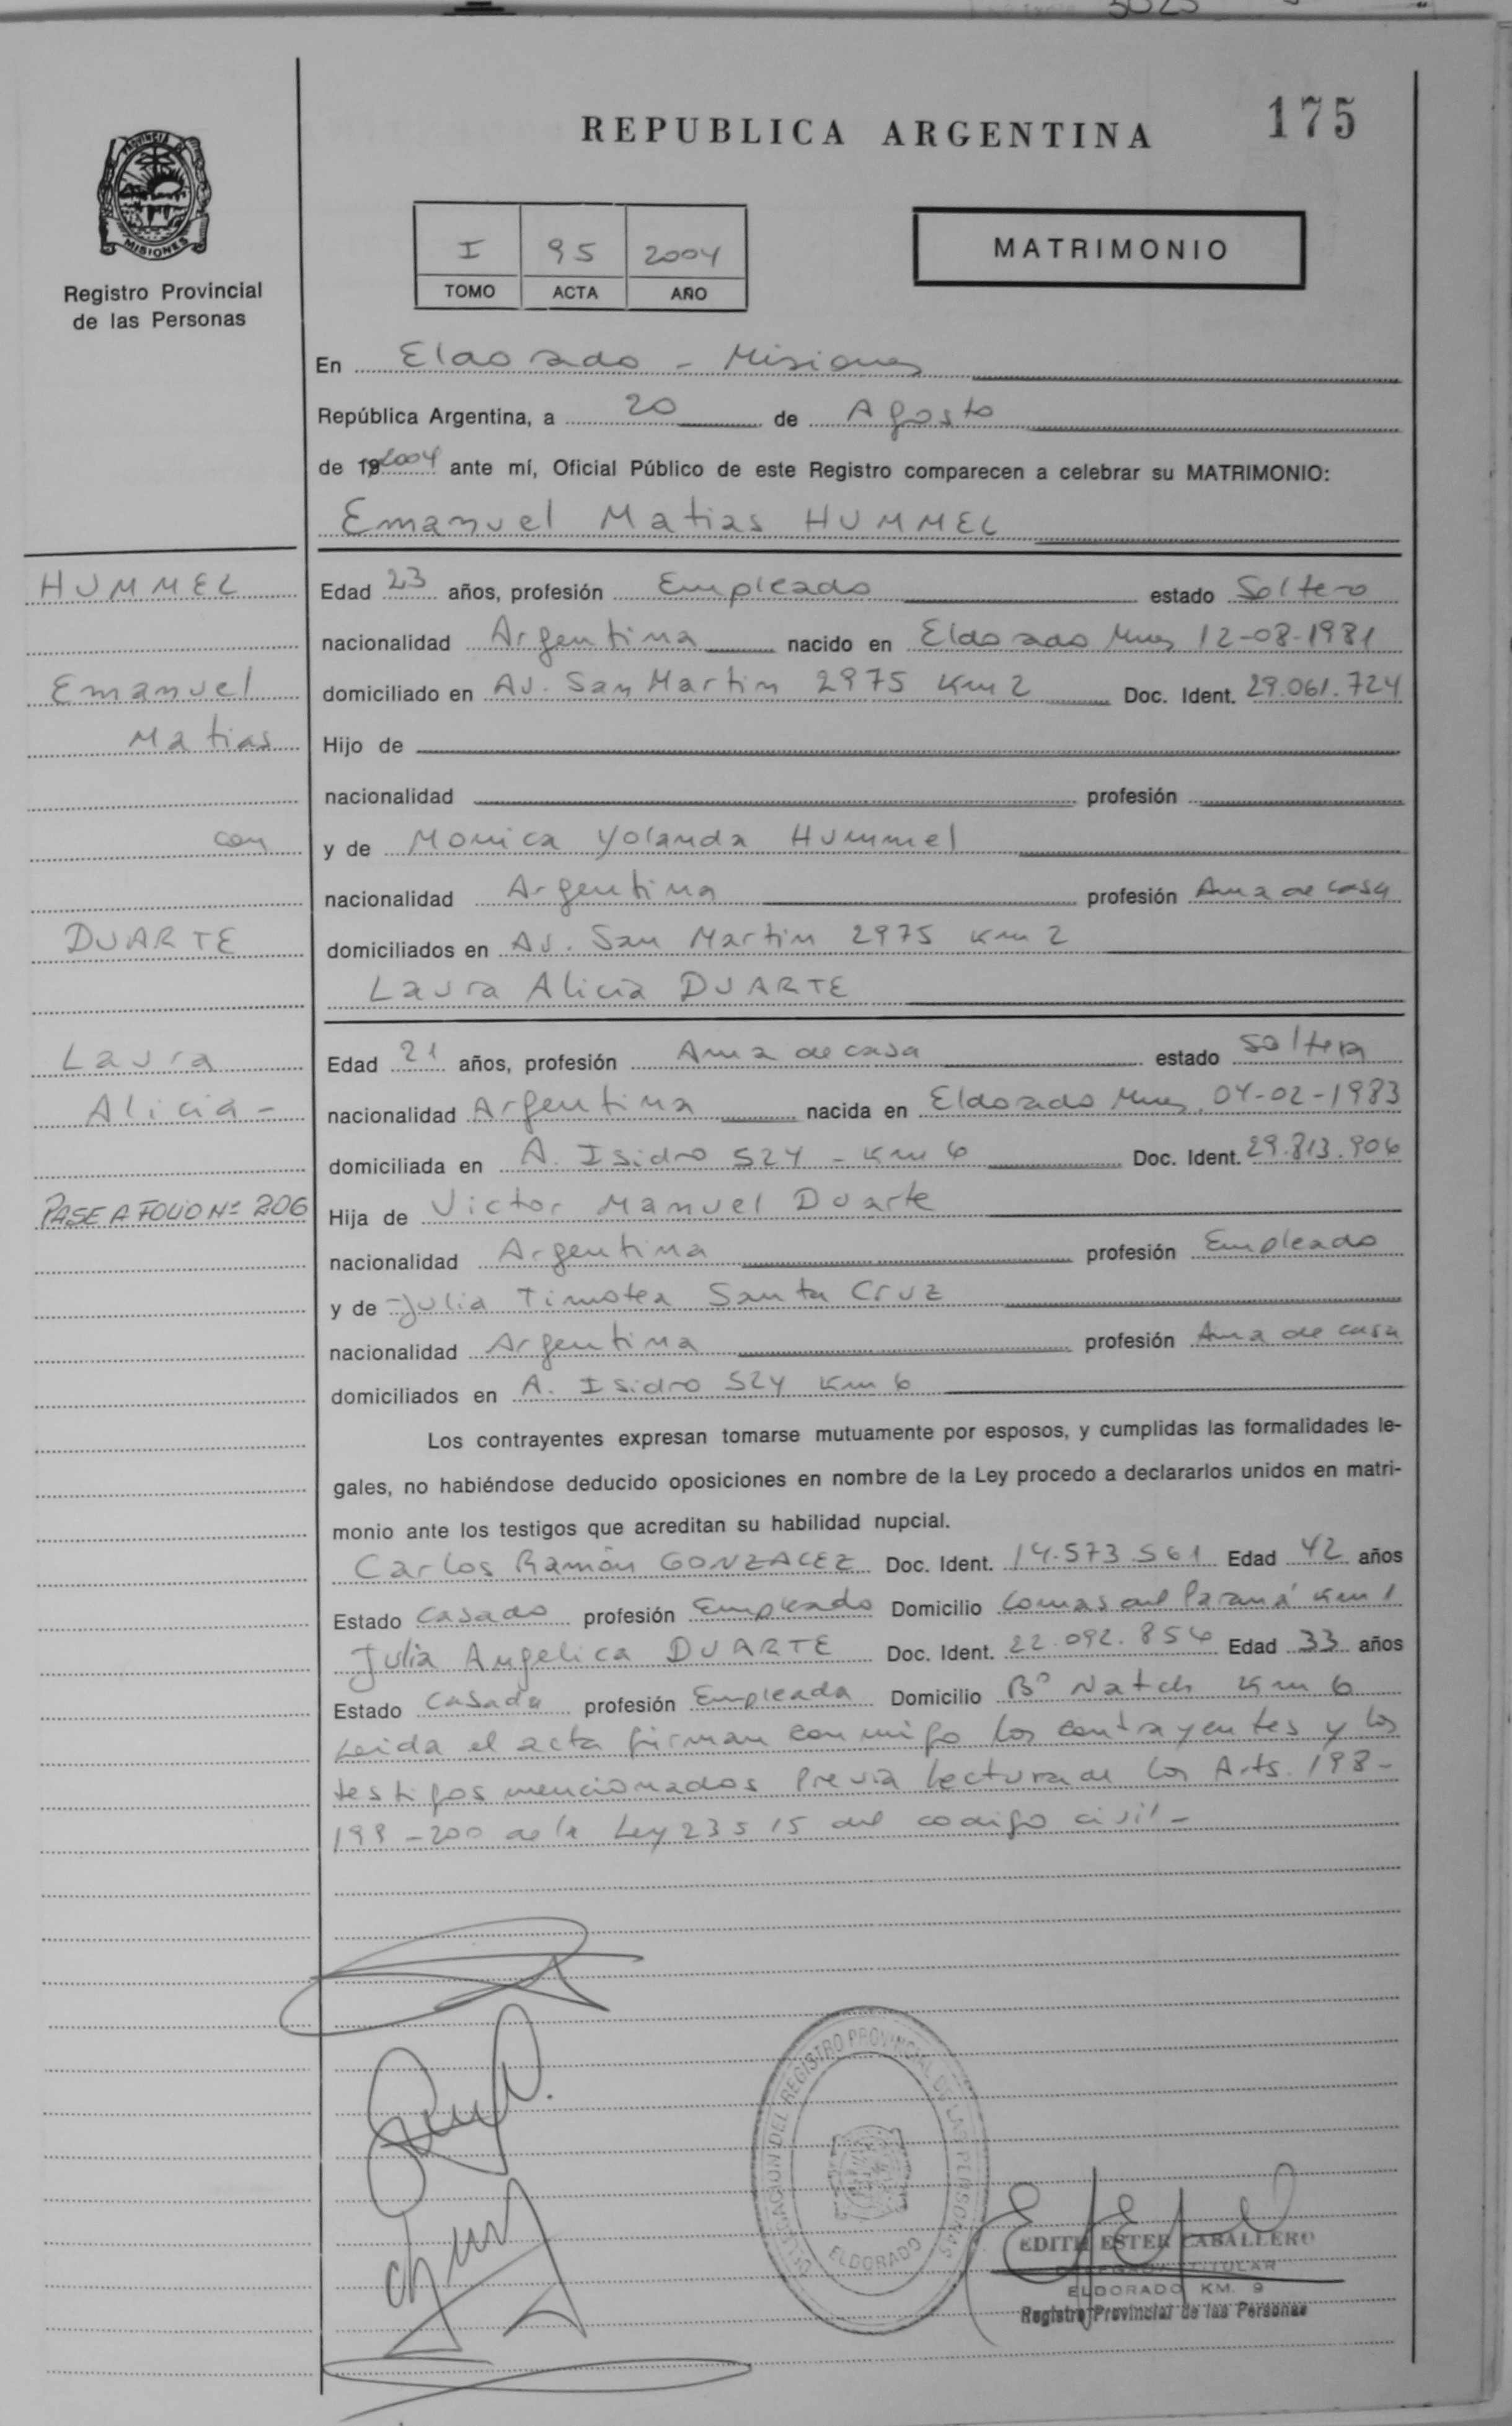 175
REPUBLICA ARGENTINA
PROVINCIA DE
MISIONES
Registro Provincial
de las Personas
I 95 2004
TOMO ACTA AÑO
MATRIMONIO
En Eldorado - Misiones
República Argentina, a 20 de Agosto
de 19 2004 ante mí, Oficial Público de este Registro comparecen a celebrar su MATRIMONIO:
Emanuel Matias HUMMEL
HUMMEL
Emanuel
Matias
con
DUARTE
Laura
Alicia -
PASE A FOLIO Nº 206
Edad 23 años, profesión Empleado estado Soltero
nacionalidad Argentina nacido en Eldorado Mnes 12-08-1981
domiciliado en Av. San Martin 2975 Km 2 Doc. Ident. 29.061.724
Hijo de
nacionalidad profesión
y de Monica Yolanda Hummel
nacionalidad Argentina profesión Ama de casa
domiciliados en Av. San Martin 2975 Km 2
Laura Alicia DUARTE
Edad 21 años, profesión Ama de casa estado Soltera
nacionalidad Argentina nacida en Eldorado Mnes, 04-02-1983
domiciliada en A. Isidro 524 - Km 6 Doc. Ident. 29.813.906
Hija de Victor Manuel Duarte
nacionalidad Argentina profesión Empleado
y de Julia Timotea Santa Cruz
nacionalidad Argentina profesión Ama de casa
domiciliados en A. Isidro 524 Km 6
Los contrayentes expresan tomarse mutuamente por esposos, y cumplidas las formalidades le-
gales, no habiéndose deducido oposiciones en nombre de la Ley procedo a declararlos unidos en matri-
monio ante los testigos que acreditan su habilidad nupcial.
Carlos Ramón GONZALEZ Doc. Ident. 14.573.561 Edad 42 años
Estado Casado profesión Empleado Domicilio Lomas del Paraná Km 1
Julia Angelica DUARTE Doc. Ident. 22.092.856 Edad 33 años
Estado Casada profesión Empleada Domicilio Bº Natch Km 6
Leida el acta firman conmigo los contrayentes y los
testigos mencionados Previa lectura de los Arts. 198-
199-200 de la Ley 23515 del codigo civil-
DELEGACION DEL REGISTRO PROVINCIAL DE LAS PERSONAS
ELDORADO
EDITH ESTER CABALLERO
DELEGADA TITULAR
ELDORADO KM. 9
Registro Provincial de las Personas